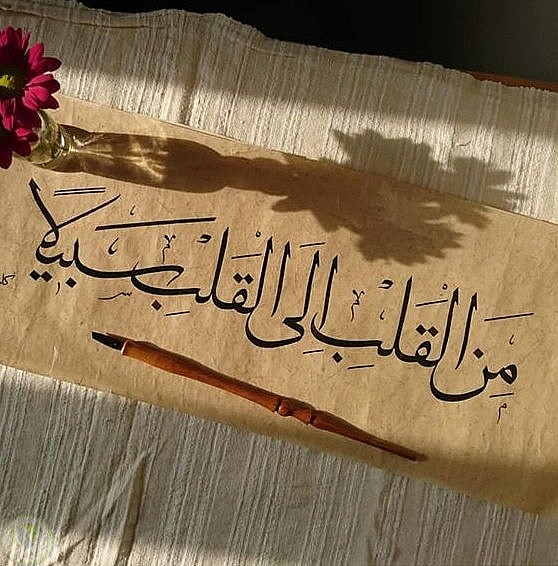 مِنَ الْقَلْبِ اِلَى الْقَلْبِ سَبِيلاً